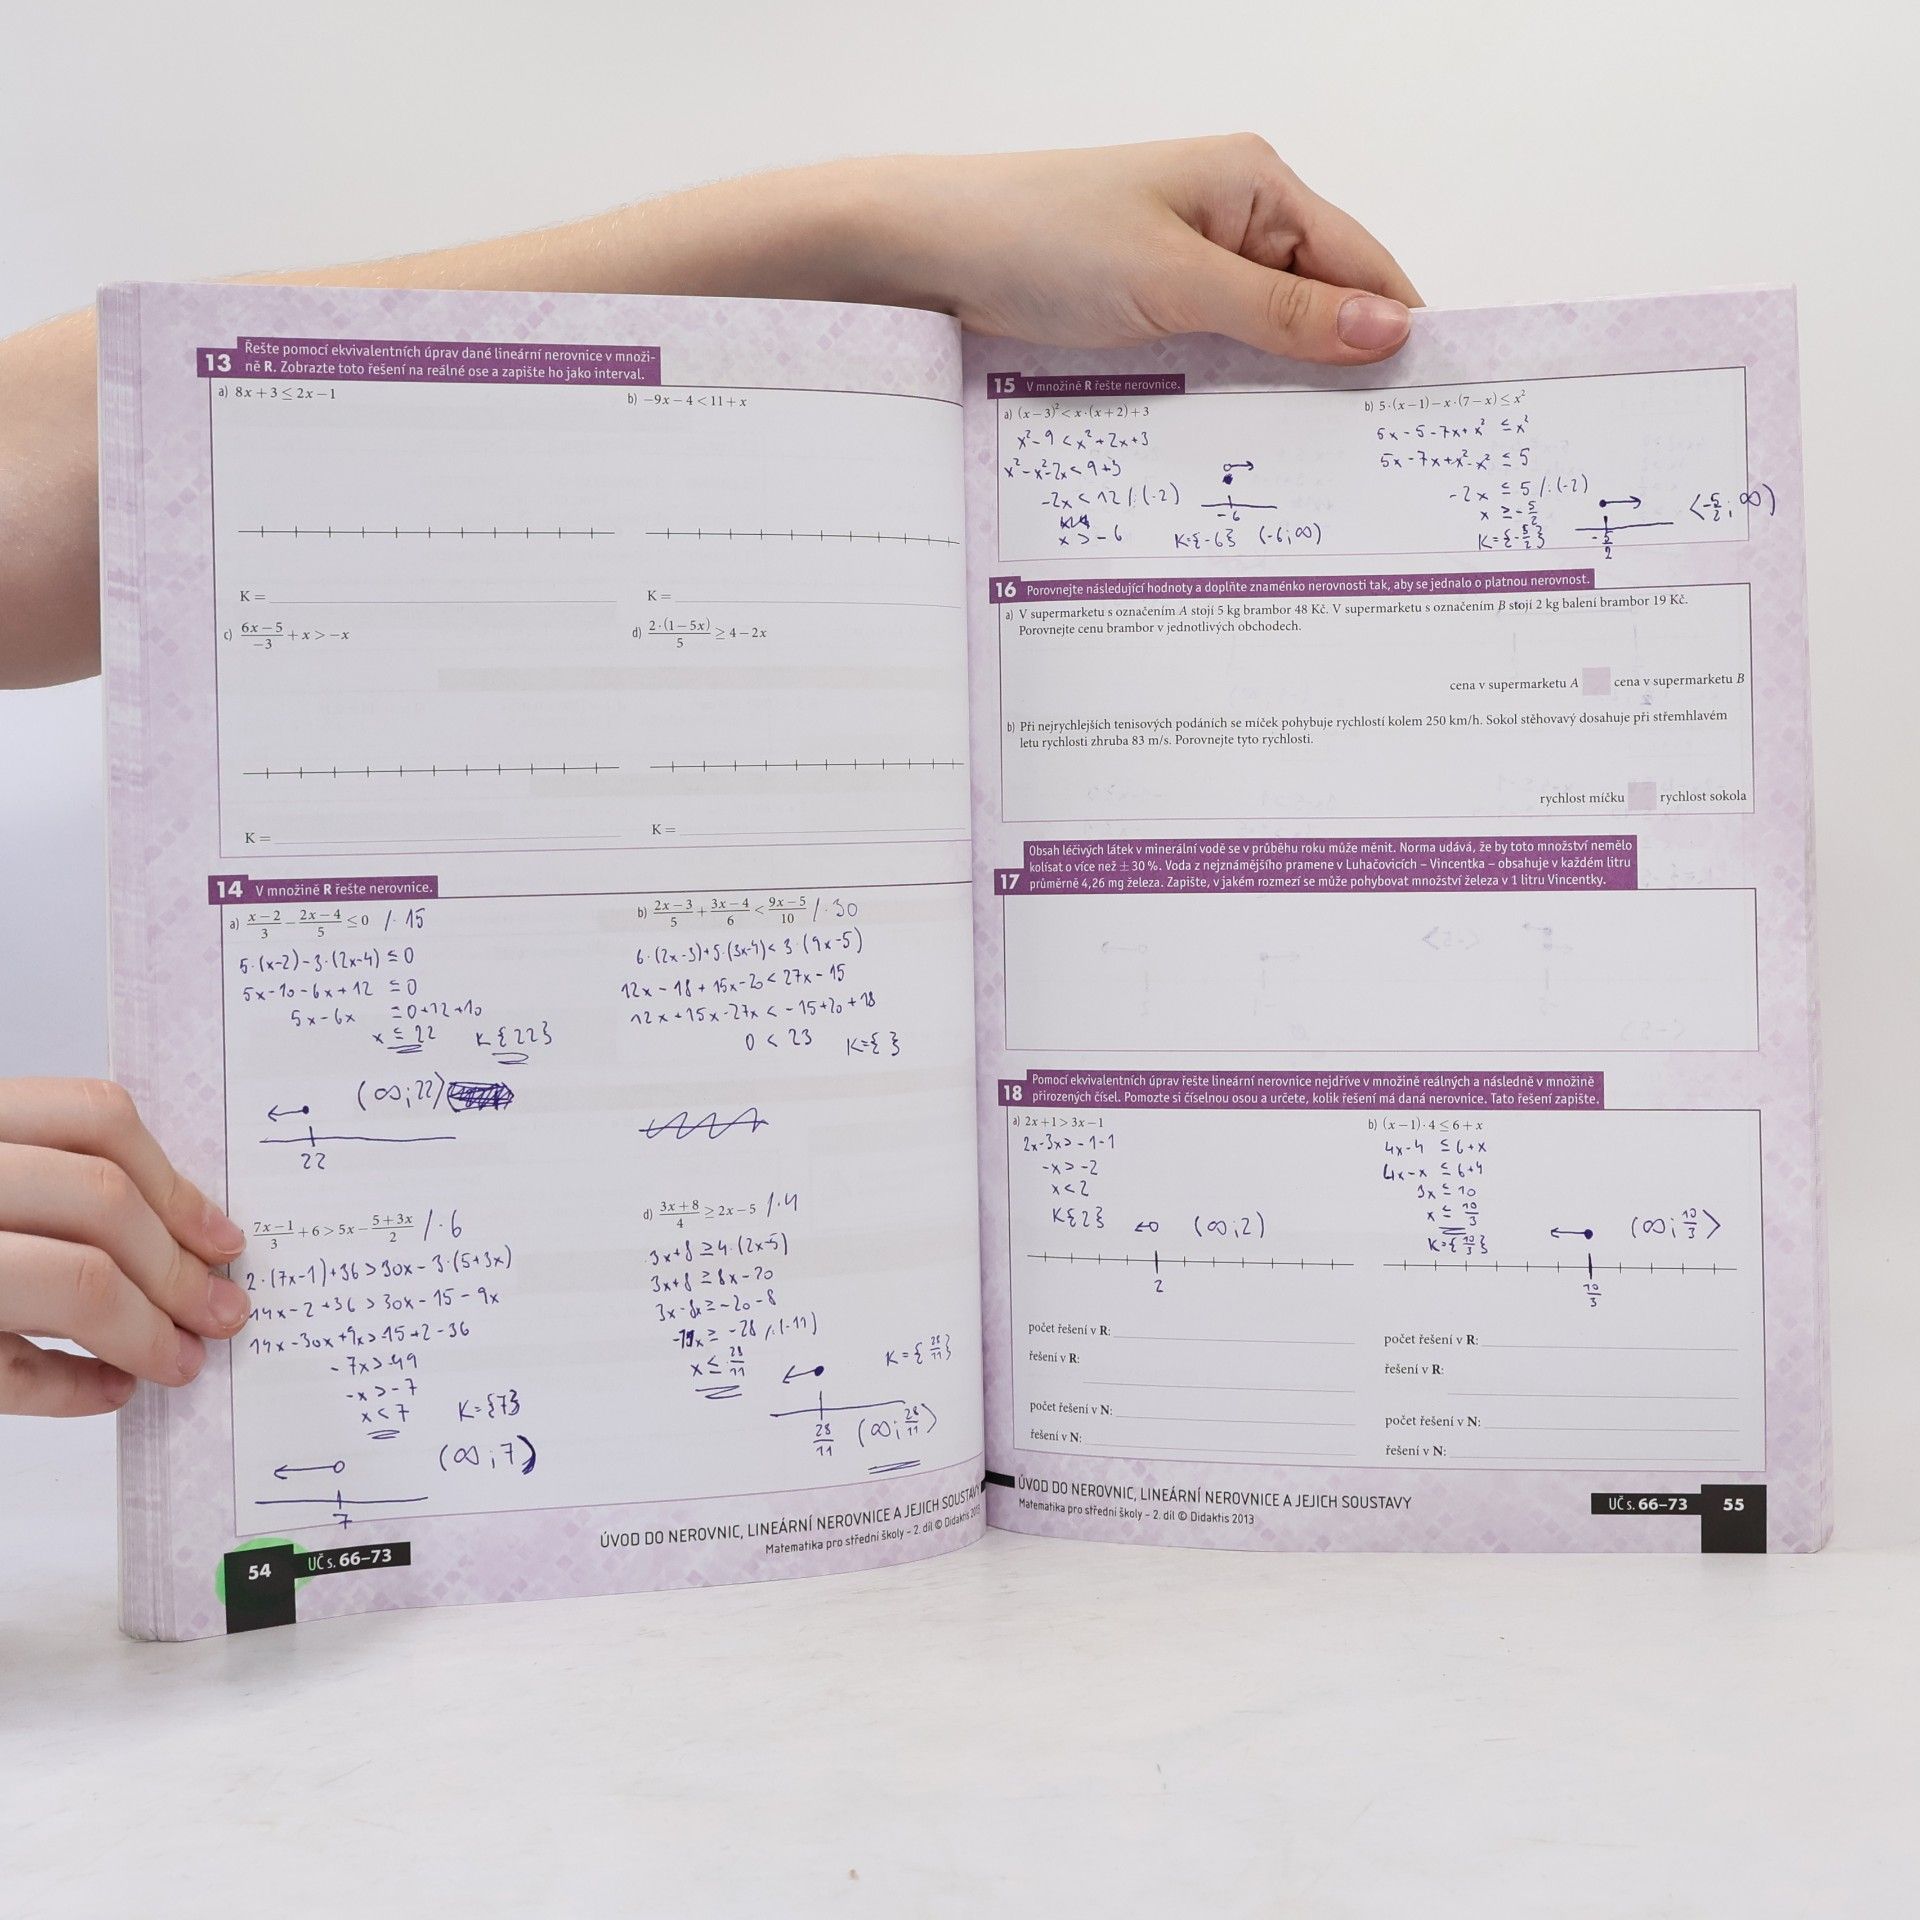 13 Řešte pomocí ekvivalentních úprav dané lineární nerovnice v množi-
ně R. Zobrazte toto řešení na reálné ose a zapište ho jako interval.
a) 8x + 3 ≤ 2x − 1
b) −9x − 4 < 11 + x
K =
K =
c) (6x − 5)/(−3) + x > −x
d) (2·(1 − 5x))/5 ≥ 4 − 2x
K =
K =
14 V množině R řešte nerovnice.
a) (x − 2)/3 − (2x − 4)/5 ≤ 0 /· 15
5·(x−2)−3·(2x−4) ≤ 0
5x−10−6x+12 ≤ 0
x ≤ 22 K{22}
(∞;22)
22
b) (2x − 3)/5 + (3x − 4)/6 < (9x − 5)/10 /· 30
6·(2x−3)+5·(3x−4)< 3·(9x−5)
12x − 18 + 15x−20 < 27x − 15
12x+15x−27x < −15+20+18
0 < 23 K={ }
(7x − 1)/3 + 6 > 5x − (5 + 3x)/2 /· 6
2·(7x−1)+36>30x−3·(5+3x)
14x−2+36 > 30x−15−9x
− 7x>−49
−x>−7
x<7 K={7}
(∞;7)
7
d) (3x + 8)/4 ≥ 2x − 5 /·4
3x+8 ≥ 4·(2x−5)
3x+8 ≥ 8x−20
3x−8x ≥ −20−8
x ≤ 28/11 K={28/11}
28/11 (∞;28/11⟩
ÚVOD DO NEROVNIC, LINEÁRNÍ NEROVNICE A JEJICH SOUSTAVY
Matematika pro střední školy – 2. díl © Didaktis 2013
54 UČ s. 66–73
15 V množině R řešte nerovnice.
a) (x − 3)² < x·(x + 2) + 3
x²−9 < x²+2x+3
x²−x²−2x < 9+3
−2x < 12 /:(−2)
x > −6 K={−6} (−6;∞)
−6
b) 5·(x − 1) − x·(7 − x) ≤ x²
5x−5−7x+x² ≤ x²
5x−7x+x²−x² ≤ 5
−2x ≤ 5 /:(−2)
x ≥ −5/2
K={−5/2}
−5/2
⟨−5/2;∞)
16 Porovnejte následující hodnoty a doplňte znaménko nerovnosti tak, aby se jednalo o platnou nerovnost.
a) V supermarketu s označením A stojí 5 kg brambor 48 Kč. V supermarketu s označením B stojí 2 kg balení brambor 19 Kč.
Porovnejte cenu brambor v jednotlivých obchodech.
cena v supermarketu A cena v supermarketu B
b) Při nejrychlejších tenisových podáních se míček pohybuje rychlostí kolem 250 km/h. Sokol stěhovavý dosahuje při střemhlavém
letu rychlosti zhruba 83 m/s. Porovnejte tyto rychlosti.
rychlost míčku rychlost sokola
Obsah léčivých látek v minerální vodě se v průběhu roku může měnit. Norma udává, že by toto množství nemělo
kolísat o více než ± 30 %. Voda z nejznámějšího pramene v Luhačovicích – Vincentka – obsahuje v každém litru
17 průměrně 4,26 mg železa. Zapište, v jakém rozmezí se může pohybovat množství železa v 1 litru Vincentky.
18 Pomocí ekvivalentních úprav řešte lineární nerovnice nejdříve v množině reálných a následně v množině
přirozených čísel. Pomozte si číselnou osou a určete, kolik řešení má daná nerovnice. Tato řešení zapište.
a) 2x + 1 > 3x − 1
2x−3x>−1−1
−x>−2
x<2
K{2} (∞;2)
2
b) (x − 1)·4 ≤ 6 + x
4x−4 ≤ 6+x
4x−x ≤ 6+4
3x ≤ 10
x ≤ 10/3
K={10/3} (∞;10/3⟩
10/3
počet řešení v R:
řešení v R:
počet řešení v N:
řešení v N:
počet řešení v R:
řešení v R:
počet řešení v N:
řešení v N:
ÚVOD DO NEROVNIC, LINEÁRNÍ NEROVNICE A JEJICH SOUSTAVY
Matematika pro střední školy – 2. díl © Didaktis 2013
UČ s. 66–73 55